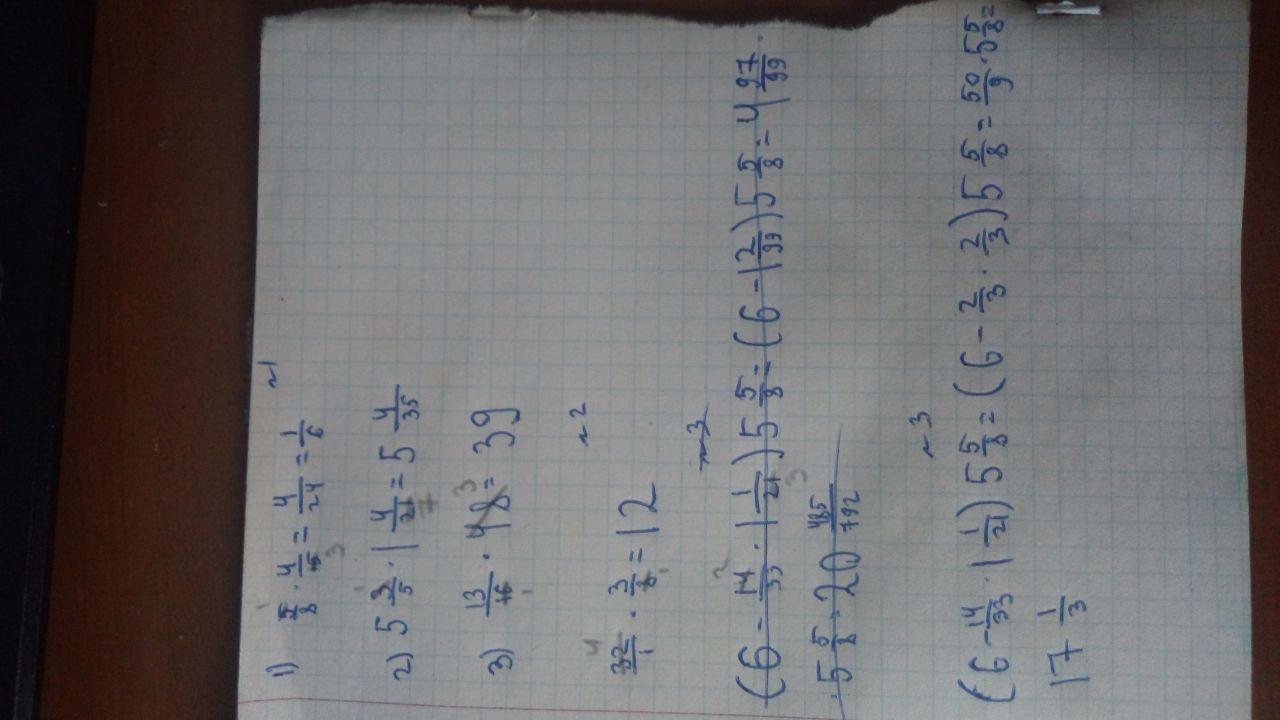 №1
1) 5/8 · 4/15 = 4/24 = 1/6
2) 5 3/5 · 1 4/21 = 5 4/35
3) 13/16 · 48 = 39
№2
32/1 · 3/8 = 12
№3
(6 - 14/33 · 1 1/21) 5 5/8 = (6 - 1 2/99) 5 5/8 = 4 97/99 ·
· 5 5/8 · 20 485/792
№3
(6 - 14/33 · 1 1/21) 5 5/8 = (6 - 2/3 · 2/3) 5 5/8 = 50/9 · 5 5/8 =
17 1/3